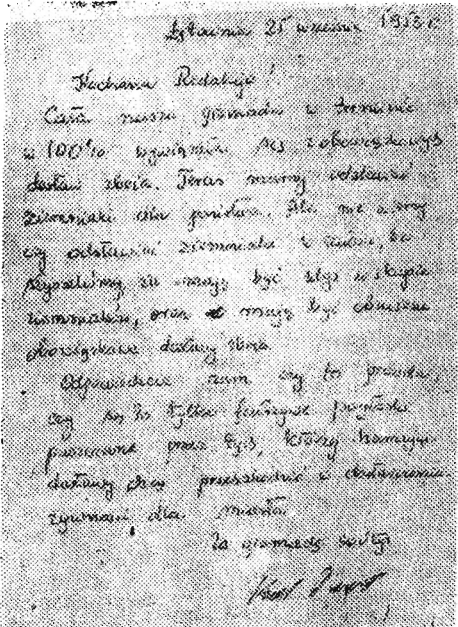 25 września 1953 r.
Kochana Redakcjo!
Cała nasza gromada w terminie
w 100% wywiązała się z obowiązkowych
dostaw zboża. Teraz mamy odstawić
ziemniaki dla państwa. Ale nie wiemy
czy odstawić ziemniaki z
słyszeliśmy, że mają być ulgi w skupie
ziemniaków, oraz mają być obniżone
obowiązkowe dostawy zboża.
Odpowiedzcie nam czy to prawda,
czy są to tylko fałszywe pogłoski
puszczane przez tych, którzy hamują
dostawy chcą przeszkodzić w dostarczaniu
żywności dla miasta.
Za gromadę sołtys